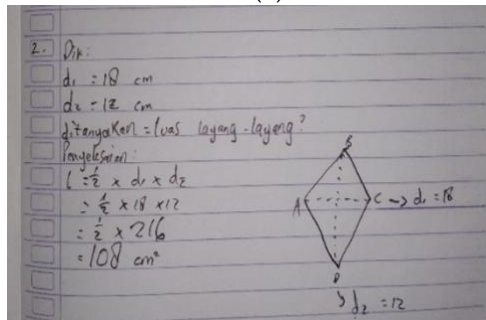 2. Dik:
d₁ = 18 cm
d₂ = 12 cm
ditanyakan = luas layang-layang?
Penyelesaian:
L = ½ x d₁ x d₂
= ½ x 18 x 12
= ½ x 216
= 108 cm²
B
A
C → d₁ = 18
D
↳ d₂ = 12